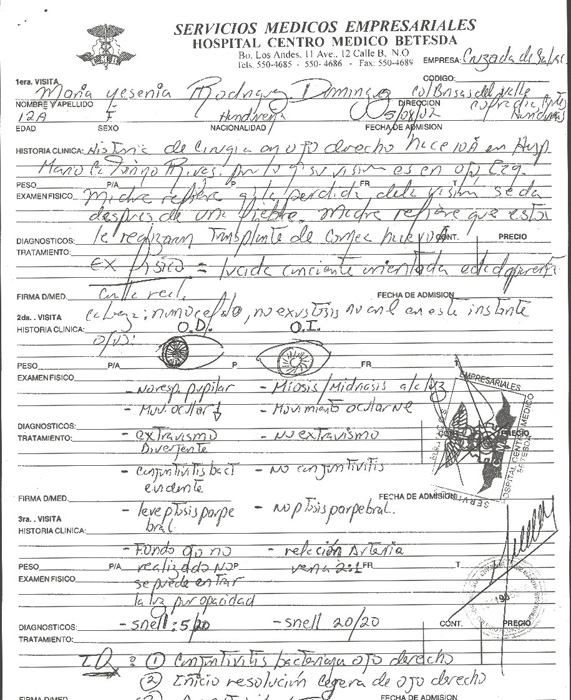 SERVICIOS MEDICOS EMPRESARIALES
HOSPITAL CENTRO MEDICO BETESDA
Bo. Los Andes, 11 Ave., 12 Calle B, N.O
Tels. 550-4685 - 550-4686 - Fax: 550-4689
EMPRESA:
CODIGO:
1era. VISITA
Maria Yesenia Rodriguez Dominguez
NOMBRE Y APELLIDO
DIRECCION
12A F Hondureña 5/08/02
EDAD SEXO NACIONALIDAD FECHA DE ADMISION
HISTORIA CLINICA: Historia de Cirugia en ojo derecho hace en Hosp
Mario su vision es en ojo
PESO P/A P FR T
EXAMEN FISICO Madre refiere q la perdida de la vision se da
despues de una fiebre. Madre refiere que esta
DIAGNOSTICOS: le realizaron Transplante de Cornea CONT. PRECIO
TRATAMIENTO:
Ex fisico = lucida conciente orientada edad aparente
FIRMA D/MED. FECHA DE ADMISION
2da.. VISITA Cabeza: normocefalo, no en este instante
HISTORIA CLINICA: O.D. O.I.
PESO P/A P FR T
EXAMEN FISICO
- No resp. pupilar - Miosis/Midriasis a/c luz
- Mov. ocular ↓ - Movimiento ocular
DIAGNOSTICOS: CONT. PRECIO
TRATAMIENTO: - extravismo - no extravismo
Divergente
- conjuntivitis bact - No conjuntivitis
evidente
FIRMA D/MED. FECHA DE ADMISION
3ra. . VISITA - leve ptosis parpe - No ptosis parpebral.
HISTORIA CLINICA: bral
- Fondo ojo no - relacion Arteria
PESO P/A realizado NO P vena 2:1 FR T
EXAMEN FISICO se puede entrar
la luz por opacidad
DIAGNOSTICOS: - snell: 5/20 - snell 20/20 CONT. PRECIO
TRATAMIENTO:
① Conjuntivitis bacteriana ojo derecho
② Inicio resolucion Cegera de ojo derecho
FIRMA D/MED. FECHA DE ADMISION
EMPRESARIALES
HOSPITAL CENTRO MEDICO
BETESDA